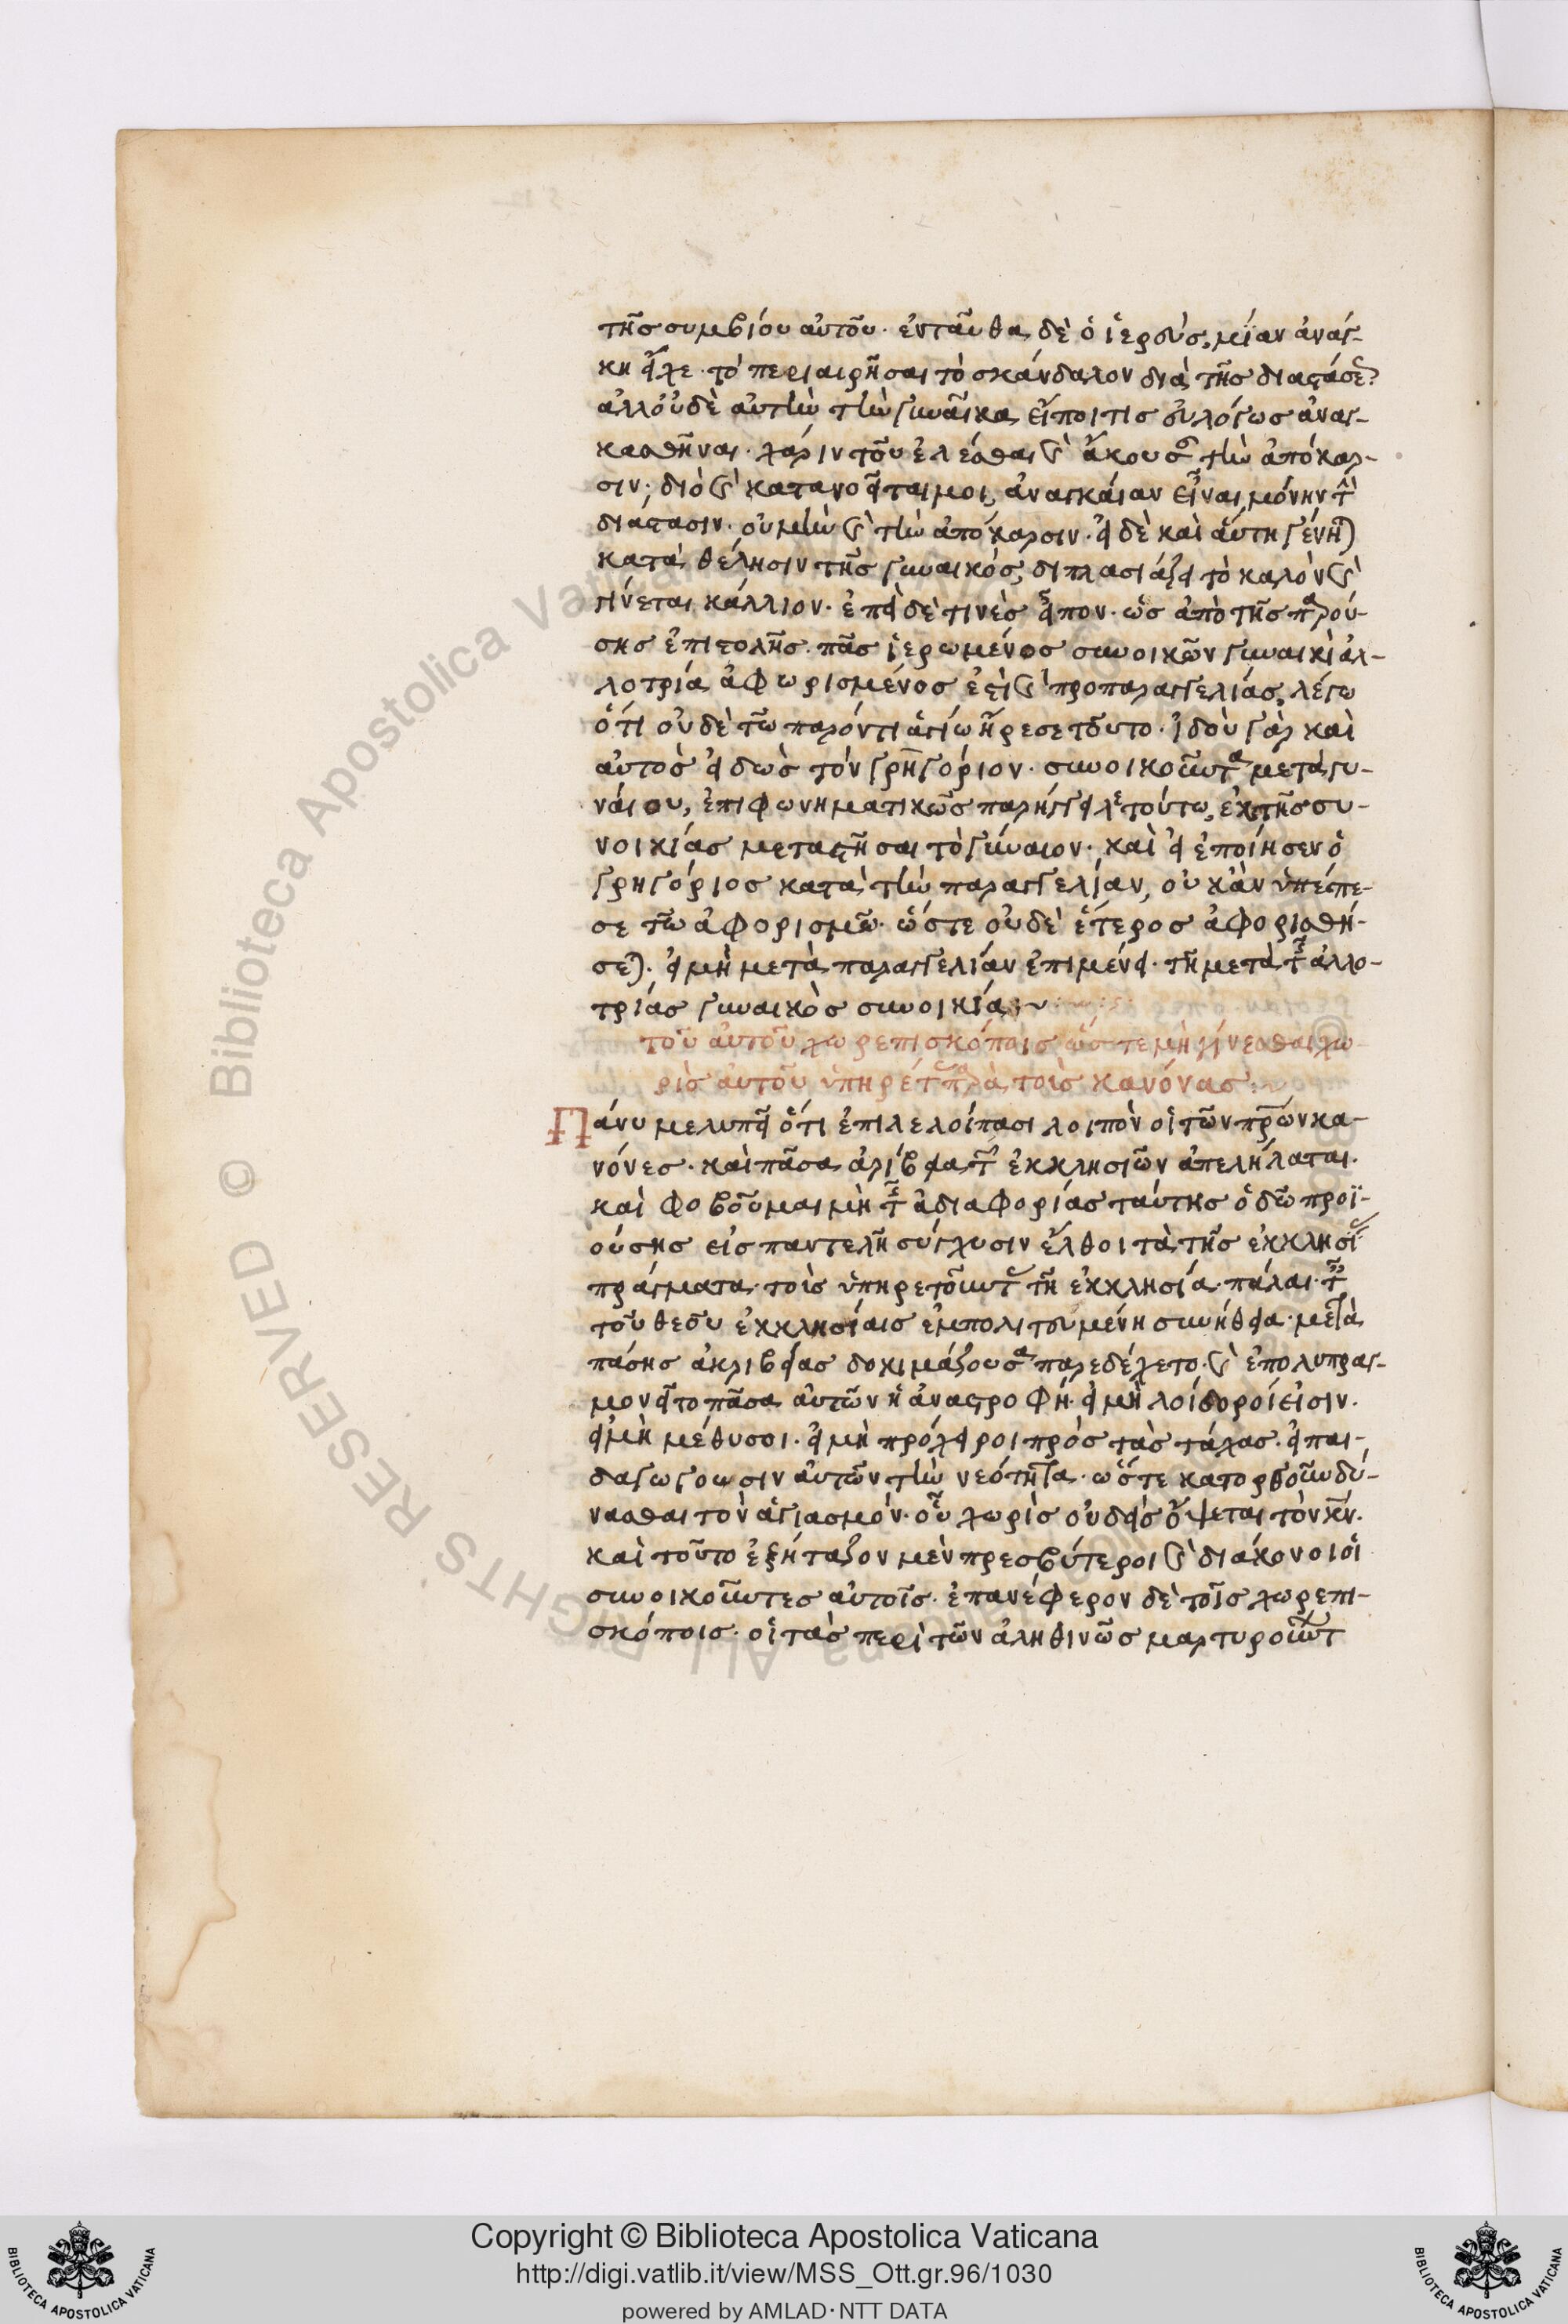 τῆς συμβίου αὐτοῦ· ἐνταῦθα δὲ ὁ ἱερεὺς, μίαν ἀνάγ-
κη εἶχε· τὸ περιαιρῆσαι τὸ σκάνδαλον διὰ τῆς διαστάσε
ἀλλ' οὐδὲ αὐτὴν τὴν γυναῖκα εἴποι τις εὐλόγως ἀναγ-
κασθῆναι· χάριν τοῦ ἑλέσθαι καὶ ἄκουσ τὴν ἀπόκαρ-
σιν; διὸ καὶ κατανοεῖται μοι, ἀναγκαίαν εἶναι μόνην τὴν
διάστασιν· οὐ μὴν καὶ τὴν ἀπόκαρσιν· εἰ δὲ καὶ αὕτη γένηται
κατὰ θέλησιν τῆς γυναικός, διπλασιάζει τὸ καλὸν καὶ
γίνεται κάλλιον· ἐπεὶ δὲ τινὲς εἶπον· ὡς ἀπὸ τῆς παρού-
σης ἐπιστολῆς· πᾶς ἱερωμένος συνοικῶν γυναικὶ ἀλ-
λοτρία ἀφωρισμένος ἐστὶ καὶ προπαραγγελίας, λέγω
ὅτι οὐδὲ τῶ παρόντι ἁγίω ἤρεσε τοῦτο· ἰδοὺ γὰρ καὶ
αὐτὸς εἰδὼς τὸν γρηγόριον· συνοικοῦντα μετὰ γυ-
ναίου, ἐπιφωνηματικῶς παρήγγειλε τούτω, ἐκ τῆς συ-
νοικίας μεταστῆσαι τὸ γύναιον· καὶ εἰ ἐποίησεν ὁ
γρηγόριος κατὰ τὴν παραγγελίαν, οὐκ ἂν ὑπέπε-
σε τῶ ἀφορισμῶ· ὥστε οὐδὲ ἕτερος ἀφορισθή-
σεται· εἰ μὴ μετὰ παραγγελίαν ἐπιμένει· τῆ μετὰ τῆς ἀλλο-
τρίας γυναικὸς συνοικία:~
τοῦ αὐτοῦ χωρεπισκόποις ὥστε μὴ γίνεσθαι χω
ρὶς αὐτοῦ ὑπηρέτας παρὰ τοὺς κανόνας:
Πάνυ με λυπεῖ ὅτι ἐπιλελοίπασι λοιπὸν οἱ τῶν πρων κα-
νόνες· καὶ πᾶσα ἀκρίβεια τῶν ἐκκλησιῶν ἀπελήλαται·
καὶ φοβοῦμαι μὴ τῆς ἀδιαφορίας ταύτης ὁδῶ προϊ-
ούσης εἰς παντελῆ σύγχυσιν ἔλθοι τὰ τῆς ἐκκλησί
πράγματα· τοὺς ὑπηρετοῦντας τῆ ἐκκλησία· πάλαι· ταῖς
τοῦ θεοῦ ἐκκλησίαις ἐμπολιτευομένη συνήθεια· μετὰ
πάσης ἀκριβείας δοκιμάζουσα παρεδέχετο· καὶ ἐπολυπραγ-
μονεῖτο πᾶσα αὐτῶν ἡ ἀναστροφή· εἰ μὴ λοίδοροί εἰσιν·
εἰ μὴ μέθυσοι· εἰ μὴ πρόχειροι πρὸς τὰς μάχας· εἰ παι-
δαγωγοῦσιν αὐτῶν τὴν νεότητα· ὥστε κατορθοῦν δύ-
νασθαι τὸν ἁγιασμόν· οὗ χωρὶς οὐδεὶς ὄψεται τὸν κν·
καὶ τοῦτο ἐξήταζον μὲν πρεσβύτεροι καὶ διάκονοι οἱ
συνοικοῦντες αὐτοῖς· ἐπανέφερον δὲ τοῖς χωρεπι-
σκόποις· οἳ τὰς περὶ τῶν ἀληθινῶς μαρτυρούντ
Copyright © Biblioteca Apostolica Vaticana
http://digi.vatlib.it/view/MSS_Ott.gr.96/1030
powered by AMLAD · NTT DATA